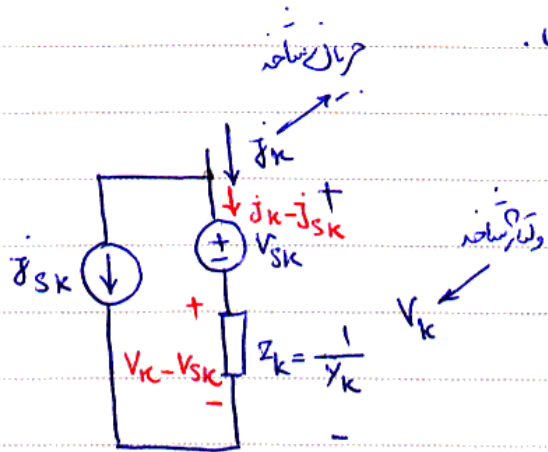 جریان شاخه
j_k
j_k - j_{sk}
+
+
-
V_{sk}
j_{sk}
ولتاژ شاخه
V_k
+
V_k - V_{sk}
-
Z_k = \frac{1}{Y_k}
-